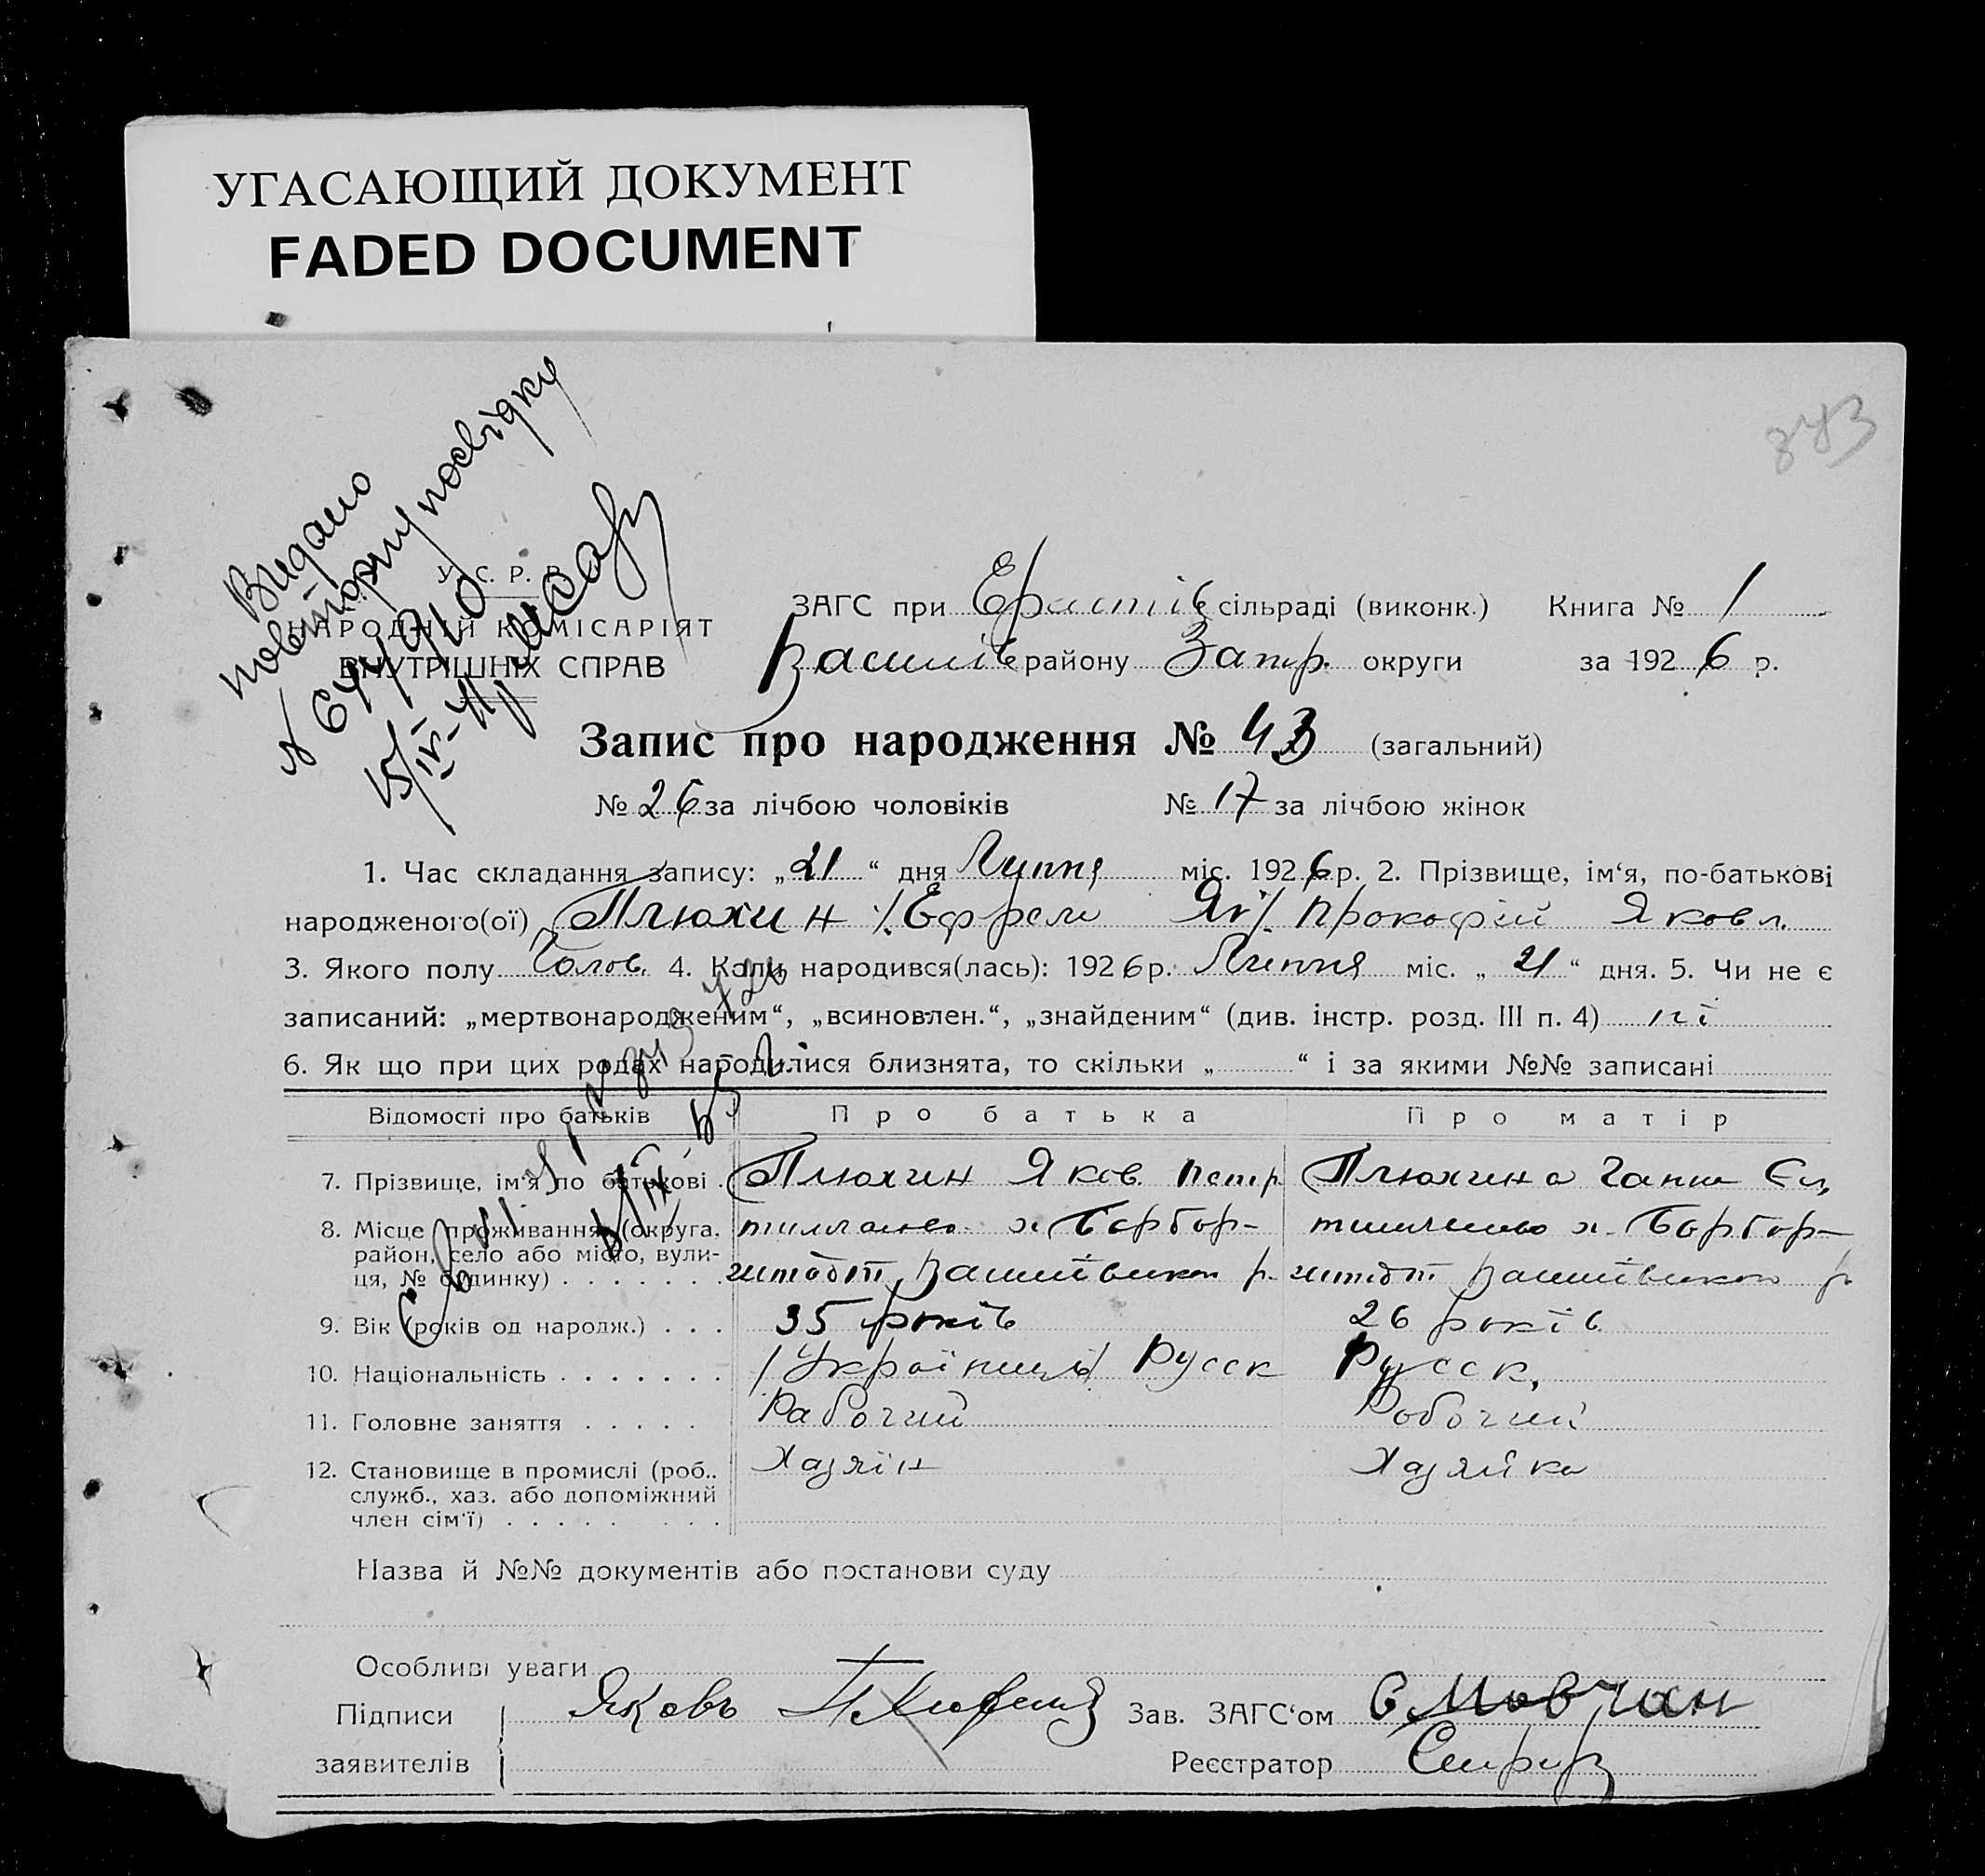 УГАСАЮЩИЙ ДОКУМЕНТ
FADED DOCUMENT
843
Видано
повторну посвідку
У. С. Р. Р.
НАРОДНІЙ КОМІСАРІЯТ
ВНУТРІШНІХ СПРАВ
ЗАГС при Ерастів сільраді (виконк.) Книга № 1
Василів району Запр. округи за 1926 р.
Запис про народження № 43 (загальний)
№ 26 за лічбою чоловіків № 17 за лічбою жінок
1. Час складання запису: „21“ дня Липня міс. 1926 р. 2. Прізвище, ім‘я, по-батькові
народженого(ої) Плюхин /Ефрем Як/. Прокофій Яковл.
3. Якого полу Чолов. 4. Коли народився(лась): 1926 р. Липня міс. „21“ дня. 5. Чи не є
записаний: „мертвонародженим“, „всиновлен.“, „знайденим“ (див. інстр. розд. III п. 4) ні
6. Як що при цих родах народилися близнята, то скільки „ “ і за якими №№ записані
Відомості про батьків Про батька Про матір
7. Прізвище, ім‘я по батькові . Плюхин Яков. Петр Плюхина Гапка
8. Місце проживання (округа,
район, село або місто, вули-
ця, № будинку) . . . . . . .
9. Вік (років од народж.) . . . 35 років 26 років
10. Національність . . . . . . . /Українці/ Русск Русск,
11. Головне заняття . . . . . Рабочий Робочий
12. Становище в промислі (роб.. Хазяїн Хазяйка
служб., хаз. або допоміжний
член сім‘ї) . . . . . . . .
Назва й №№ документів або постанови суду
Особливі уваги
Підписи Яковъ Зав. ЗАГС‘ом Мовчан
заявителів Реєстратор